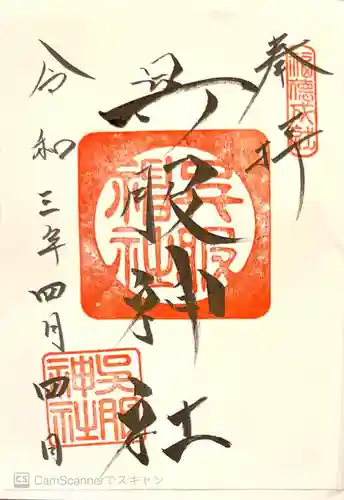 奉拝
呉服神社
令和三年四月四日
呉服神社
呉服神社
CS CamScannerでスキャン